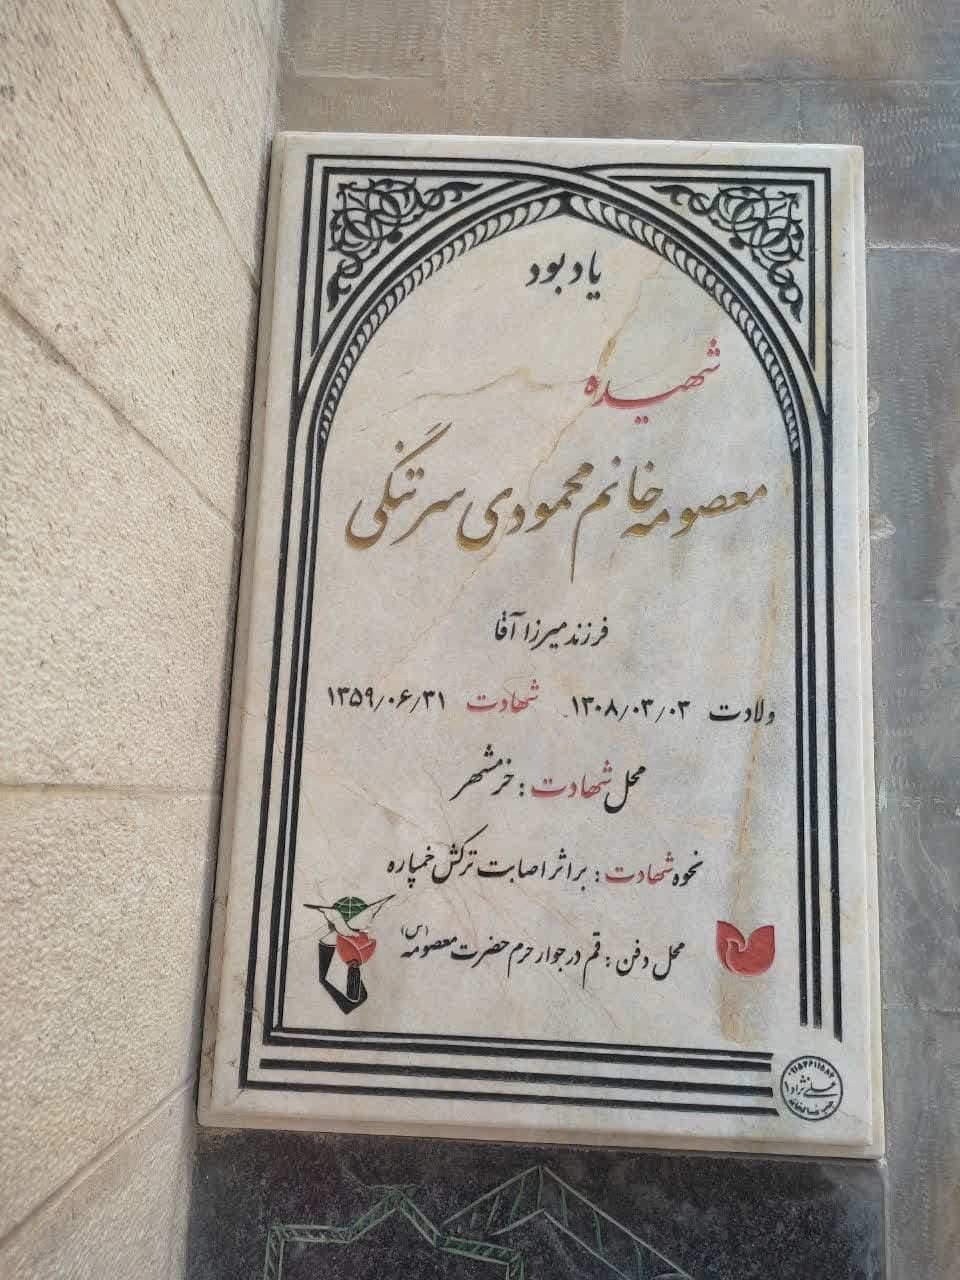 یادبود
شهیده
معصومه خانم محمودی سرتنگی
فرزند میرزا آقا
ولادت ۱۳۰۸/۰۳/۰۳ شهادت ۱۳۵۹/۰۶/۳۱
محل شهادت : خرمشهر
نحوه شهادت : بر اثر اصابت ترکش خمپاره
محل دفن : قم در جوار حرم حضرت معصومه (س)